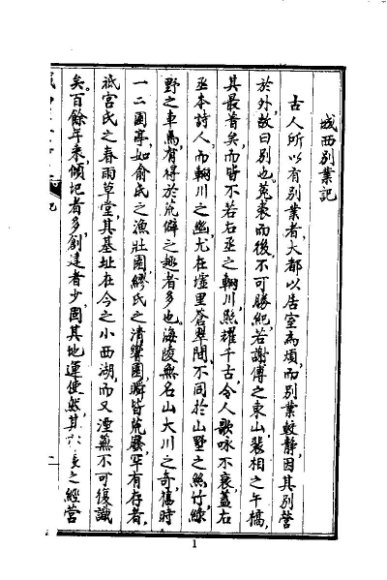 城西別業記
古人所以有別業者，大都以居室為煩，而別業較靜，因其別營
於外，故曰別也。菟裘而後，不可勝紀，若謝傅之東山，裴相之午橋，
其最著矣，而皆不若右丞之輞川照耀千古，令人歌咏不衰，蓋右
丞本詩人，而輞川之幽尤在墟里蒼翠間，不同於山墅之無竹綠
野之車馬，有得於荒僻之趣者多也。海陵無名山大川之奇，舊時
一二園亭，如俞氏之漁壯園，繆氏之清響園，皆荒廢罕有存者，
祗宮氏之春雨草堂，其基址在今之小西湖，而又湮蕪不可復識
矣。百餘年來，傾圮者多，創建者少，固其地運使然，其之經營
記
1